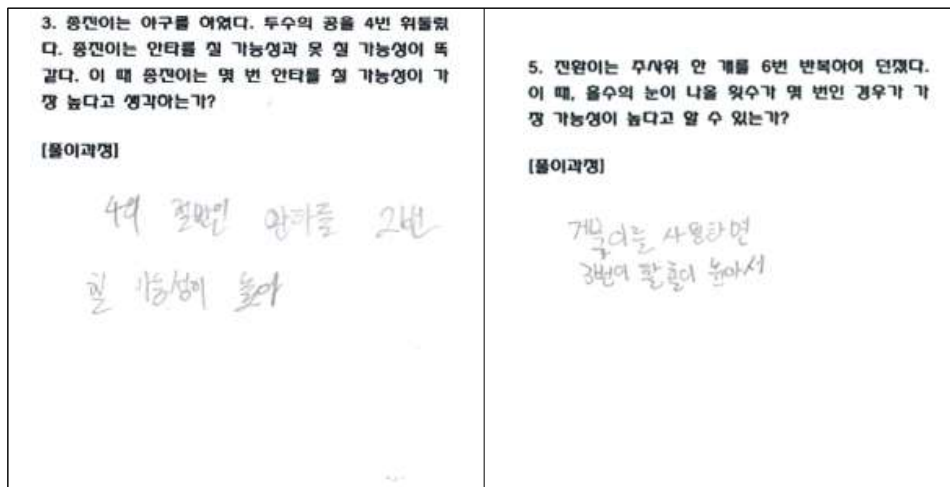 3. 종진이는 야구를 하였다. 투수의 공을 4번 휘둘렀
다. 종진이는 안타를 칠 가능성과 못 칠 가능성이 똑
같다. 이 때 종진이는 몇 번 안타를 칠 가능성이 가
장 높다고 생각하는가?
[풀이과정]
4의 절반인 안타를 2번
칠 가능성이 높아
5. 진환이는 주사위 한 개를 6번 반복하여 던졌다.
이 때, 홀수의 눈이 나올 횟수가 몇 번인 경우가 가
장 가능성이 높다고 할 수 있는가?
[풀이과정]
거북이를 사용하면
3번이 확률이 높아서